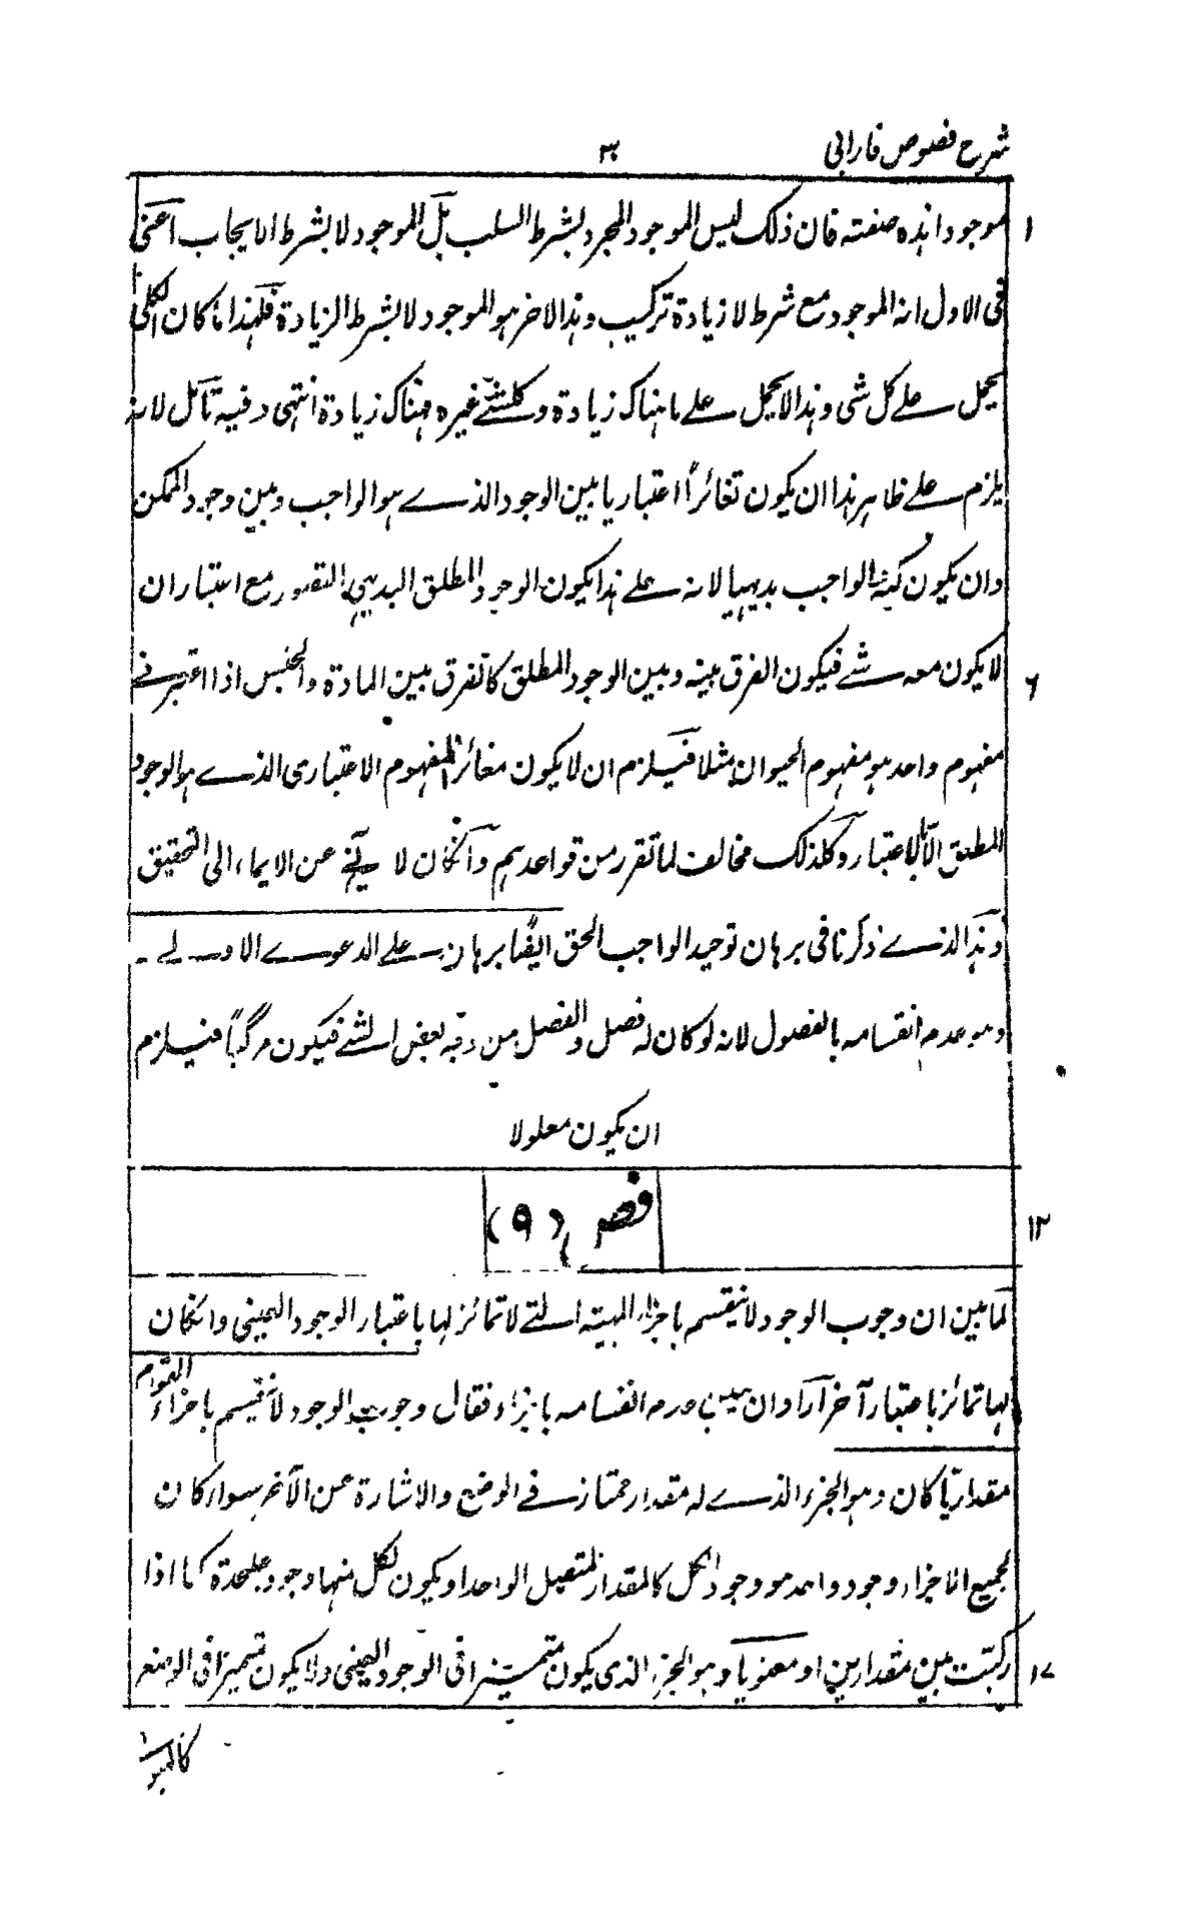 شرح فصوص فارابی
۳
۱ موجودا هذه صفته فان ذلك ليس الموجود المجرد بشرط السلب بل الموجود لا بشرط الايجاب اعنی
فی الاول انه الموجود مع شرط لا زيادة تركيب وهذا الاخر هو الموجود لا بشرط الزيادة فلهذا ما كان الكلی
يحمل علے كل شی وهذا لا يحمل علے ما هناك زيادة وكل شئے غيره فهناك زيادة انتهی وفيه تامل لانه
يلزم علے ظاهر هذا ان يكون تغائرًا اعتباريا بين الوجود الذے هو الواجب وبين وجود الممكن
وان يكون كنه الواجب بديهيا لانه علے هذا يكون الوجود المطلق البديهی التصور مع اعتبار ان
۶ لا يكون معه شئے فيكون الفرق بينه وبين الوجود المطلق كالفرق بين المادة والجنس اذا اعتبر فے
مفهوم واحد هو مفهوم الحيوان مثلا فيلزم ان لا يكون مغائر المفهوم الاعتباری الذے هو الوجود
المطلق الا بالاعتبار وكل ذلك مخالف لما تقرر من قواعدهم وانكان لا يخ عن الايماء الی التحقيق
وهذا الذے ذكرنا فی برهان توحيد الواجب الحق ايضًا برهان علے الدعوے الاولے -
وهو عدم انقسامه بالفصول لانه لو كان له فصل والفصل من وجه بعض الشئے فيكون مركبًا فيلزم
ان يكون معلولا
۱۲ فص (۹)
لما بين ان وجوب الوجود لا ينقسم باجزاء المهية التے لا تمائز لها باعتبار الوجود العينی وانكان
لها تمائز باعتبار آخر اراد ان يبين عدم انقسامه باجزاء فقال وجوب الوجود لا ينقسم باجزاء القوام
مقداريا كان وهو الجزء الذے له مقدار ممتاز فے الوضع والاشارة عن الآخر سواء كان
لجميع الاجزاء وجود واحد هو وجود الكل كالمقدار المتصل الواحد او يكون لكل منها وجود علحدة كما اذا
۱۷ ركبت من مقدارين او معنويا وهو الجزء الذی يكون متميزا فی الوجود العينی ولا يكون متميزا فی الوضع
كالهيولی